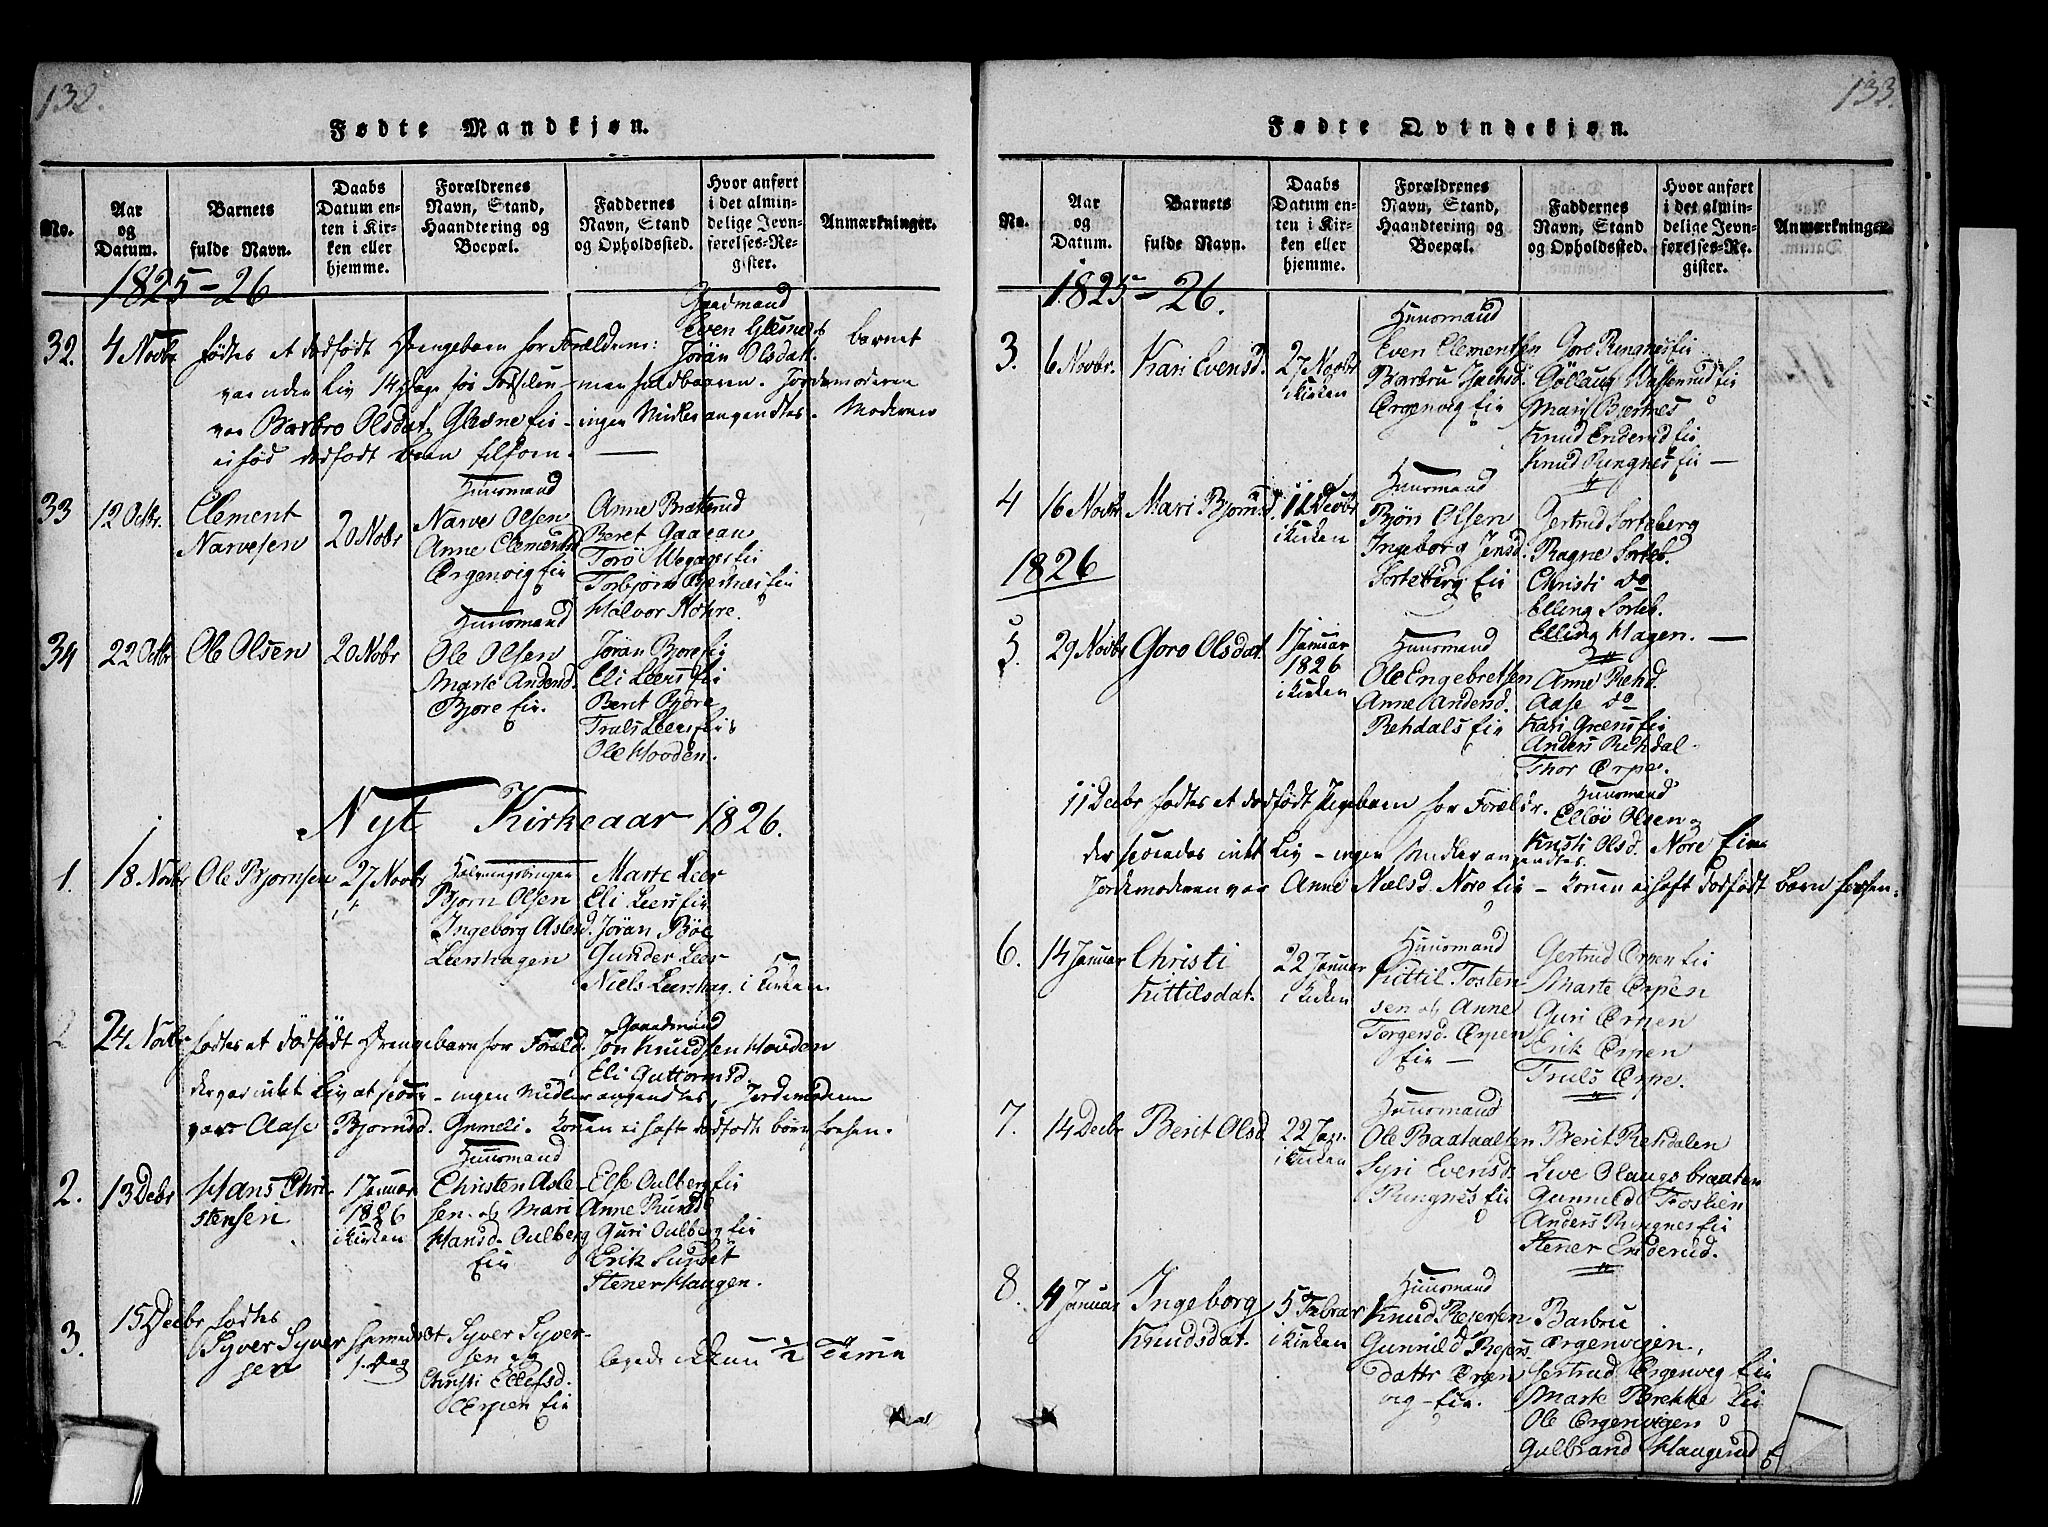 132.
Fødte Mandkjøn.
No.
Aar
og
Datum.
Barnets
fulde Navn.
Daabs
Datum en-
ten i Kir-
ken eller
hjemme.
Forældrenes
Navn, Stand,
Haandtering og
Boepæl.
Faddernes
Navn, Stand
og Opholdssted.
Hvor anført
i det almin-
delige Jevn-
førelses-Re-
gister.
Anmærkninger.
1825-26
Gaardmand
32. 4 Novbr. fødtes et dødfødt Drengebarn for Forældrene: Even Glesne og
Jöran Olsdat.
var uden Liv 14 dage før Fødselen - men fuldbaaren. Jordemoderen
var Barbro Olsdat. Glesne Eie - ingen Midler anvendtes. Moderen
ei fød dødfødt Barn tilforn.
33
12 Octbr.
Clement
Narvesen
20 Novbr
Huusmand
Narve Olsen
Anne Clemensd
Ørgenvig Eie
Anne Bratterud
Beret Gaaran
Torö
Torbjörn
Halvor Nohre.
34
22 Octbr
Ole Olsen
20 Novbr
Huusmand
Ole Olsen
Marte Andersd.
Bjore Eie.
Jöran Bjore Eie
Eli Leers Eie
Berit Björe
Truls Leers Eie
Ole Hovden.
Nyt Kirkeaar 1826.
1.
18 Novbr
Ole Bjornsen
27 Novbr
Bjorn Olsen
Ingeborg Aslesd.
Leershagen
Marte Leer
Eli Leers Eie
Jöran Böe
Gunder Leer
Niels Leershag. i Kirken
Gaardmand
24. Novbr fødtes et dödfödt Drengebarn for Foræld. Jon Knudsen Hovden
Eli Guttormsd.
der var intet Liv at spore - ingen Midler anvendtes, Jordemoderen
var Aase Bjornsd. Konen ei haft dødfødte börn forhen.
2.
13 Decbr
Hans Chri-
stensen
1 Januar
1826
i Kirken
Huusmand
Christen Asle-
sen og Mari
Hansd. Oulberg
Eie
Else Oulberg Eie
Anne Rund
Guri Oulberg Eie
Erik Sundet
Stener Haugen.
3.
15 Decbr fødtes
Syver Syver
sen
Syver Syver-
sen og
Christi Ellefsd.
Ørpen Eie
levede ikkun 1/2 Time
133.
Fødte Qvindekjøn.
No.
Aar
og
Datum.
Barnets
fulde Navn.
Daabs
Datum en-
ten i Kir-
ken eller
hjemme.
Forældrenes
Navn, Stand,
Haandtering og
Boepæl.
Faddernes
Navn, Stand
og Opholdssted.
Hvor anført
i det almin-
delige Jevn-
førelses-Re-
gister.
Anmærkninger.
1825-26.
3.
6 Novbr.
Kari Evensd.
27 Novbr
i Kirken
Huusmand
Even Clementsen
Barbru
Ørgenvig Eie
Goro Ringnes Eie
Göllaug Eie
Mari Bærnes
Knud Enderud Eie
Knud Ringnes Eie
4
16 Novbr
Mari Bjornsd.
11 Decbr
i Kirken
Huusmand
Bjön Olsen
Ingeborg Jensd.
Sorteberg Eie
Gertrud Sorteberg
Ragne Sorteb.
Christi do
Elling Sorteb.
Elling Hagen.
1826
5.
29 Novbr
Goro Olsdat.
1 Januar
1826
i Kirken
Huusmand
Ole Engebretsen
Anne Andersd.
Rehdals Eie
Anne Rehd.
Aase do
Kari Grøens Eie
Anders Rehdal
Thor Ørpe.
Huusmand
11 Decbr fødtes et dødfödt Pigebarn for Forældr. Ellöv Olsen og
Kristi Olsd. Nore Eie
der sporedes intet Liv - ingen Midler anvendtes.
Jordemoderen var Anne Nielsd. Nore Eie - Konen ei haft dødfødt barn forhen.
6.
14 Januar
Christi
Kittilsdat.
22 Januar
i Kirken
Huusmand
Kittil Tosten
sen og Anne
Torgersd. Ørpen
Eie
Gertrud Ørpen Eie
Marte Ørpen
Guri Ørpen
Erik Ørpen
Truls Ørpe.
7.
14 Decbr
Berit Olsd
22 Jan.
i Kirken
Huusmand
Ole
Syri Evensd.
Ringnes Eie
Berit Rehdalen
Live Olaugsbraaten
Gunnild Troskien
Anders Ringnes Eie
Stener Enderud.
8.
4 Januar
Ingeborg
Knudsdat.
5 Febrar
i Kirken
Huusmand
Knud Reiersen
Gunnild Reiers
datter Ørgen
vig Eie.
Barbru
Ørgenvigen,
Gertrud Ørgenvig Eie
Marte Brekke Eie
Ole Ørgenvigen
Gulbrand Haugerud